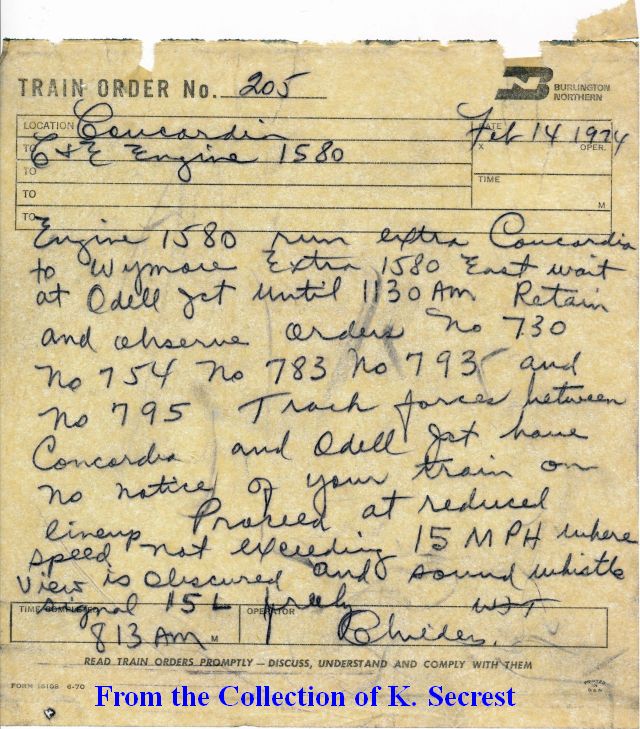 TRAIN ORDER No. 205
BURLINGTON
NORTHERN
LOCATION Concordia
DATE Feb 14 1974
TO C & E Engine 1580
X OPER.
TO
TIME
TO
M
TO
Engine 1580 run extra Concordia
to Wymore Extra 1580 East wait
at Odell Jct until 1130 AM Retain
and observe orders No 730
No 754 No 783 No 793 and
No 795 Track forces between
Concordia and Odell Jct have
no notice of your train on
lineup Proceed at reduced
speed not exceeding 15 MPH where
view is obscured and sound whistle
signal 15 L freely WJT
TIME COMPLETED
OPERATOR
813 AM M
Childers.
READ TRAIN ORDERS PROMPTLY — DISCUSS, UNDERSTAND AND COMPLY WITH THEM
FORM 15108 6-70
PRINTED
IN
U.S.A.
From the Collection of K. Secrest